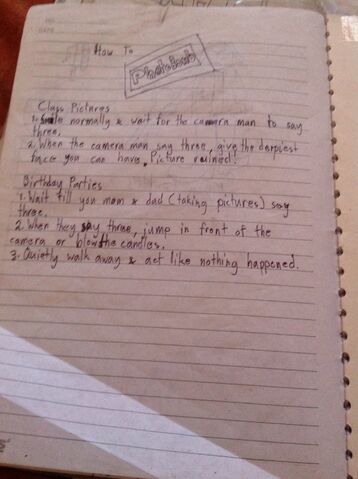 DATE
How To
Photobomb
Class Pictures
1. Smile normally & wait for the camera man to say
three.
2. When the camera man say three, give the derpiest
face you can have. Picture ruined!
Birthday Parties
1. Wait till you mom & dad (taking pictures) say
three.
2. When they say three, jump in front of the
camera or blow the candles.
3. Quietly walk away & act like nothing happened.